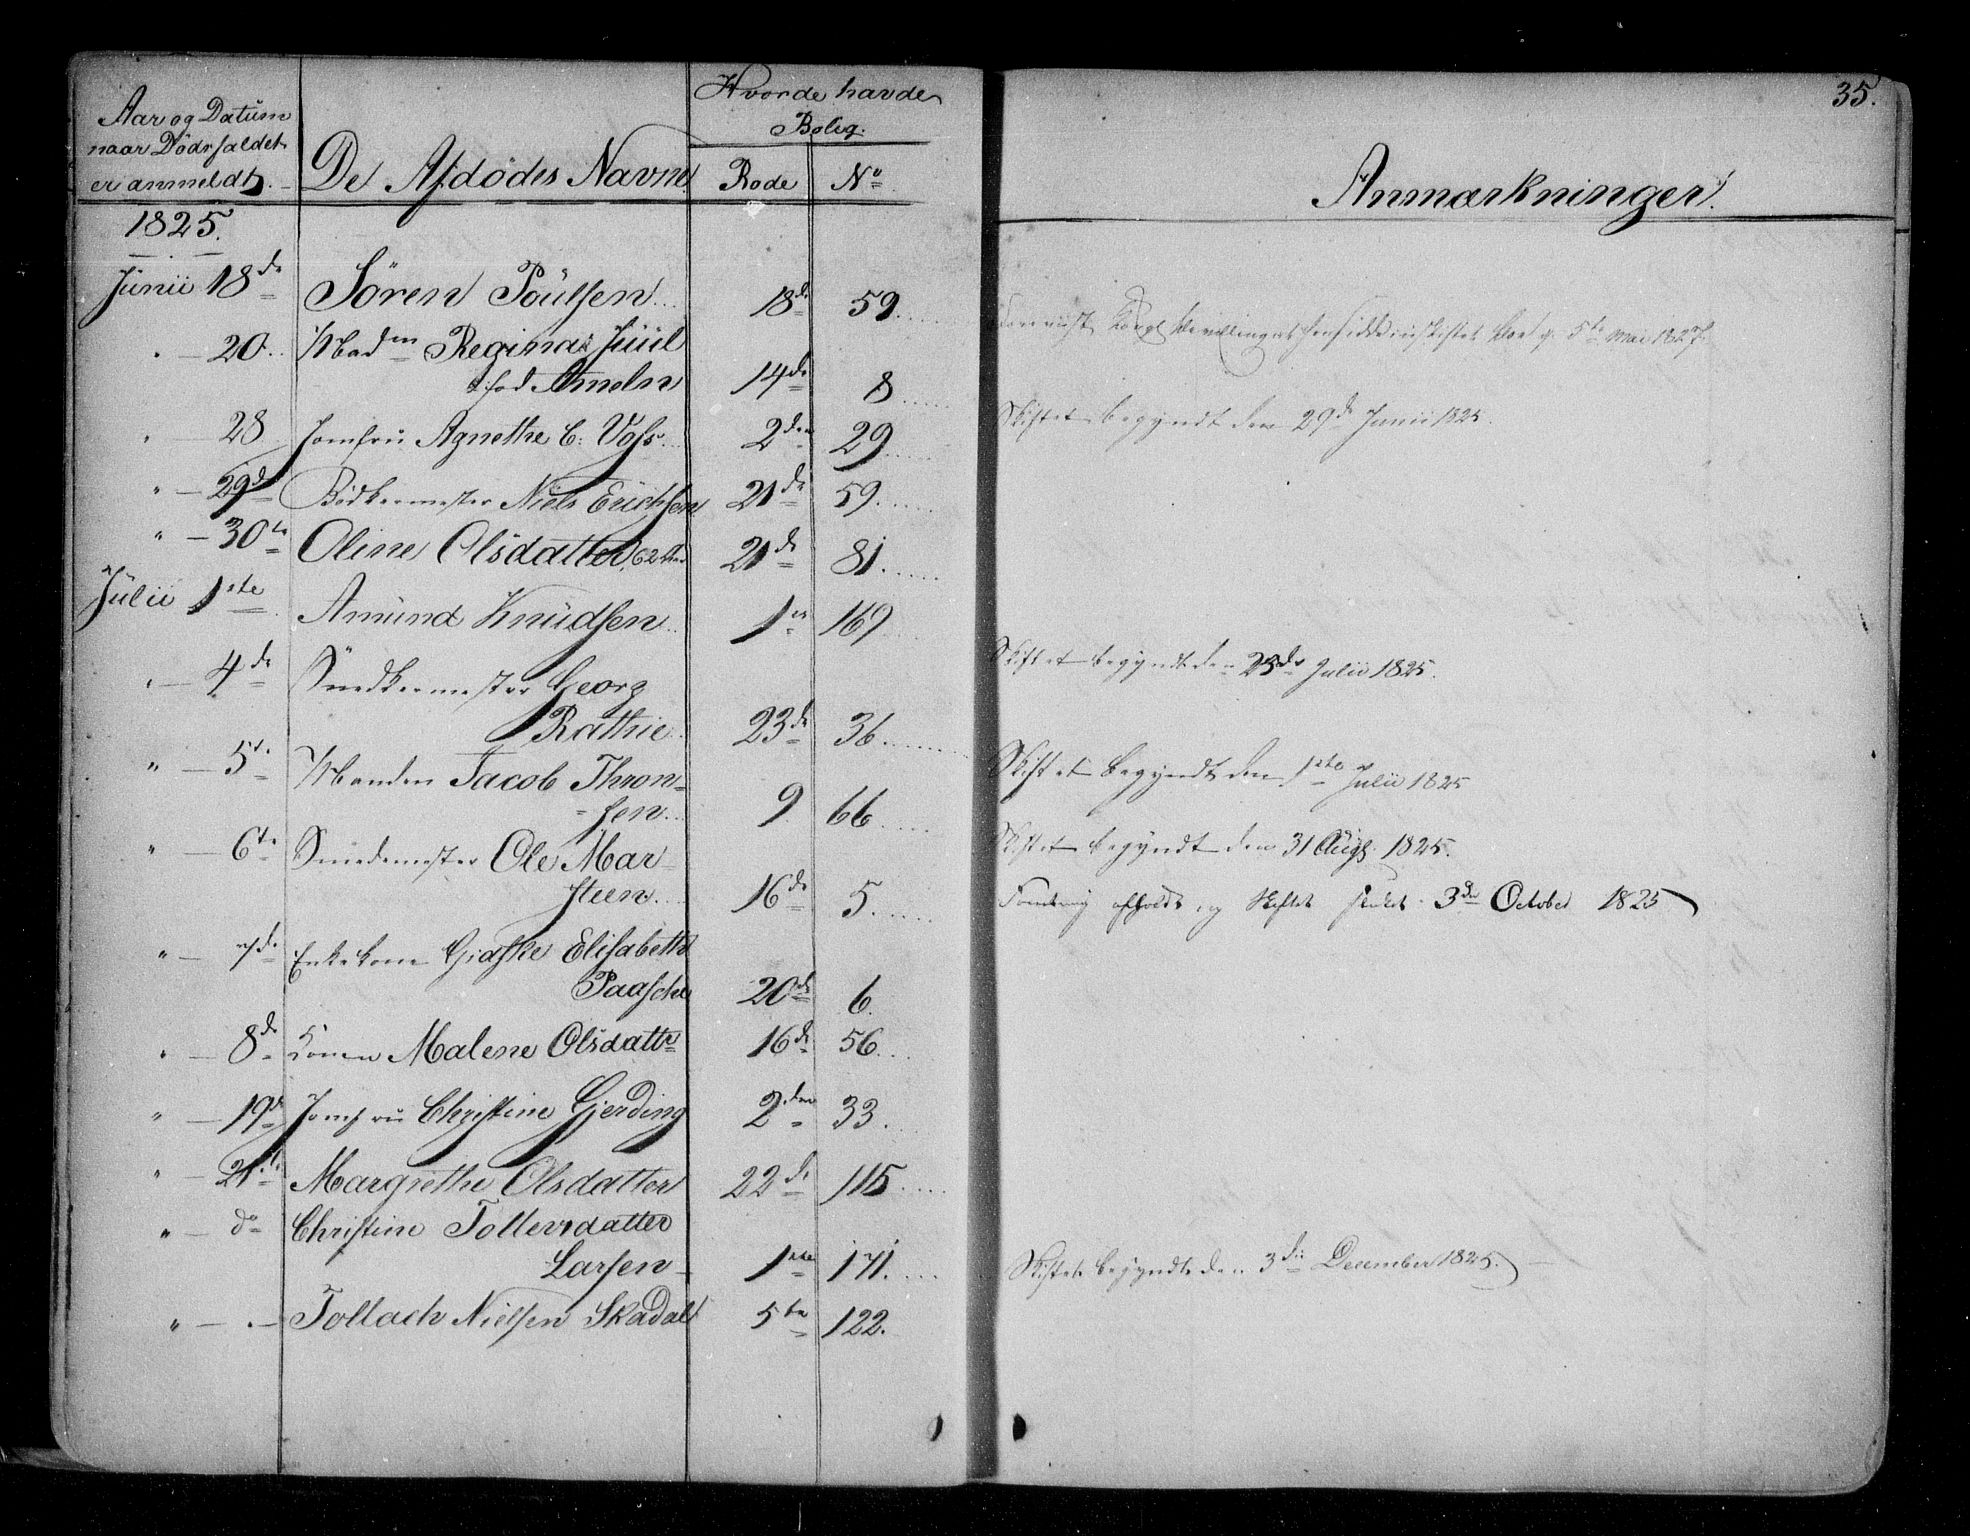 Aar og Datum
naar Dödsfaldet
er anmeldt.
De Afdödes Navne
Hvor de havde
Bolig.
Rode No
1825.
Junii 18de Sören Poulsen 18de 59
" — 20. Madm Regina Juul
föd Ameln 14de 8
" — 28 Jomfru Agnethe C: Voss 2den 29
" — 29de Bödkermester Niels Erichsen 21de 59.
" — 30te Oline Olsdatter, 62 21de 81.
Julii 1ste Amund Knudsen 1ste 169
" — 4de Snedkermester Georg
Rathie 23de 36.
" — 5te Manden Jacob Thron=
=sen 9 66
" — 6te Smedemester Ole Mar=
steen 16de 5.
" — 7de Enkekone Giaske Elisabeth
Paasche 20de 6.
" — 8de Konen Malene Olsdattr 16de 56
" — 19de Jomfru Christine Gjerding 2den 33.
" — 21de Margrethe Olsdatter 22de 115
" — do Christine Tollevsdatter
Larsen 1ste 171.
" — . — Tollach Nielsen Skadal 5te 122.
35.
Anmærkninger.
Kongl 5te Mai 1827.
Skiftet begyndt den 29de Junii 1825.
Skiftet begyndt den 25de Julii 1825.
Skiftet begyndt den 1ste Julii 1825
Skiftet begyndt den 31 Augs. 1825.
afholdt og Skiftet sluttet 3de October 1825
Skiftet begyndt den 3die December 1825.